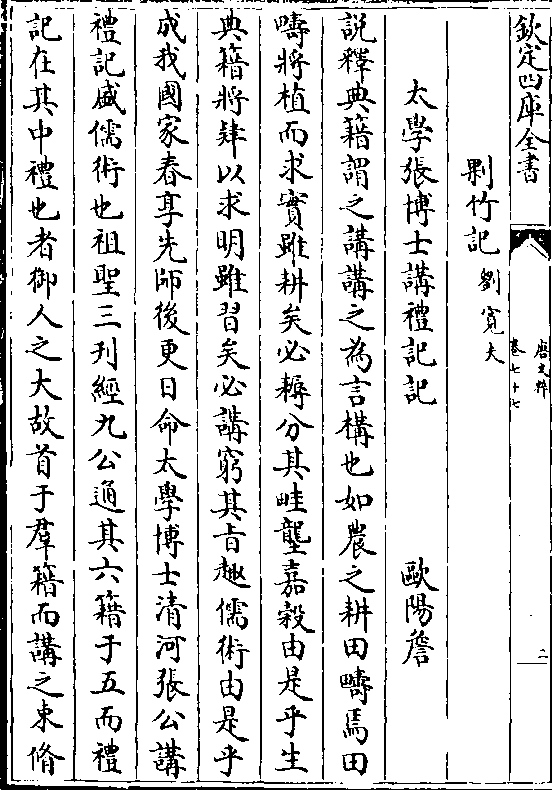 欽定四庫全書
唐文粹
卷七十七
二
剿竹記 劉寬夫
太學張博士講禮記記 歐陽詹
説釋典籍謂之講講之為言構也如農之耕田疇焉田
疇將植而求實雖耕矣必耨分其畦壟嘉穀由是乎生
典籍將肄以求明雖習矣必講窮其旨趣儒術由是乎
成我國家春享先師後更日命太學博士清河張公講
禮記盛儒術也祖聖三刊經九公通其六籍于五而禮
記在其中禮也者御人之大故首于羣籍而講之束脩